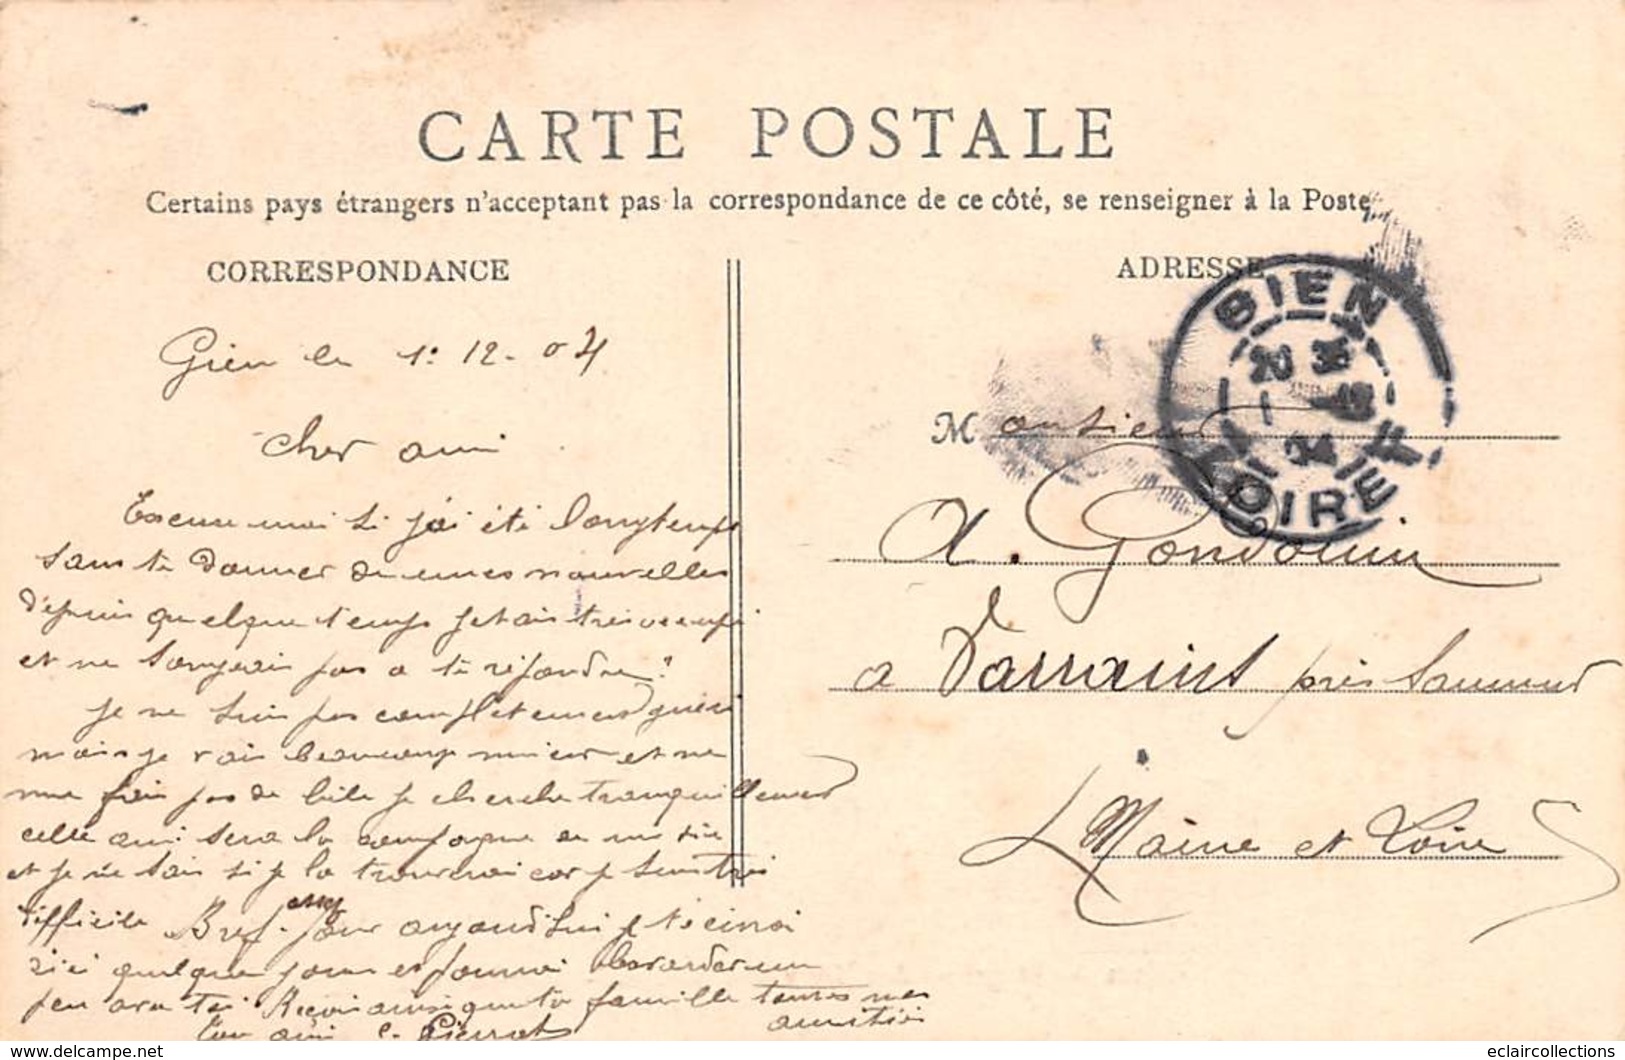 CARTE POSTALE
Certains pays étrangers n'acceptant pas la correspondance de ce côté, se renseigner à la Poste
CORRESPONDANCE
ADRESSE
GIEN
20 35
1 - 12
04
LOIRET
Gien le 1: 12 - 04
Cher ami
Excuse moi si j'ai été longtemps
sans te donner de mes nouvelles
depuis quelque temps jetais tres occupé
et ne songeais pas a te répondre.
je ne suis pas completement guéri
mais je vais beaucoup mieux et ne
me fais pas de bile je cherche tranquillement
celle qui sera la compagne de ma vie
et je ne sais si je la trouverai car je suis très
difficile Bref. assez pour aujourd'hui je t'écirai
d'ici quelque jours et pourrai bavarder un
peu avec toi Reçois ainsi que ta famille toutes mes
amitiés
Ton ami C. Pierrot
Monsieur
A. Gondouin
a Varrains près Saumur
Maine et Loire
eclaircollections
www.delcampe.net